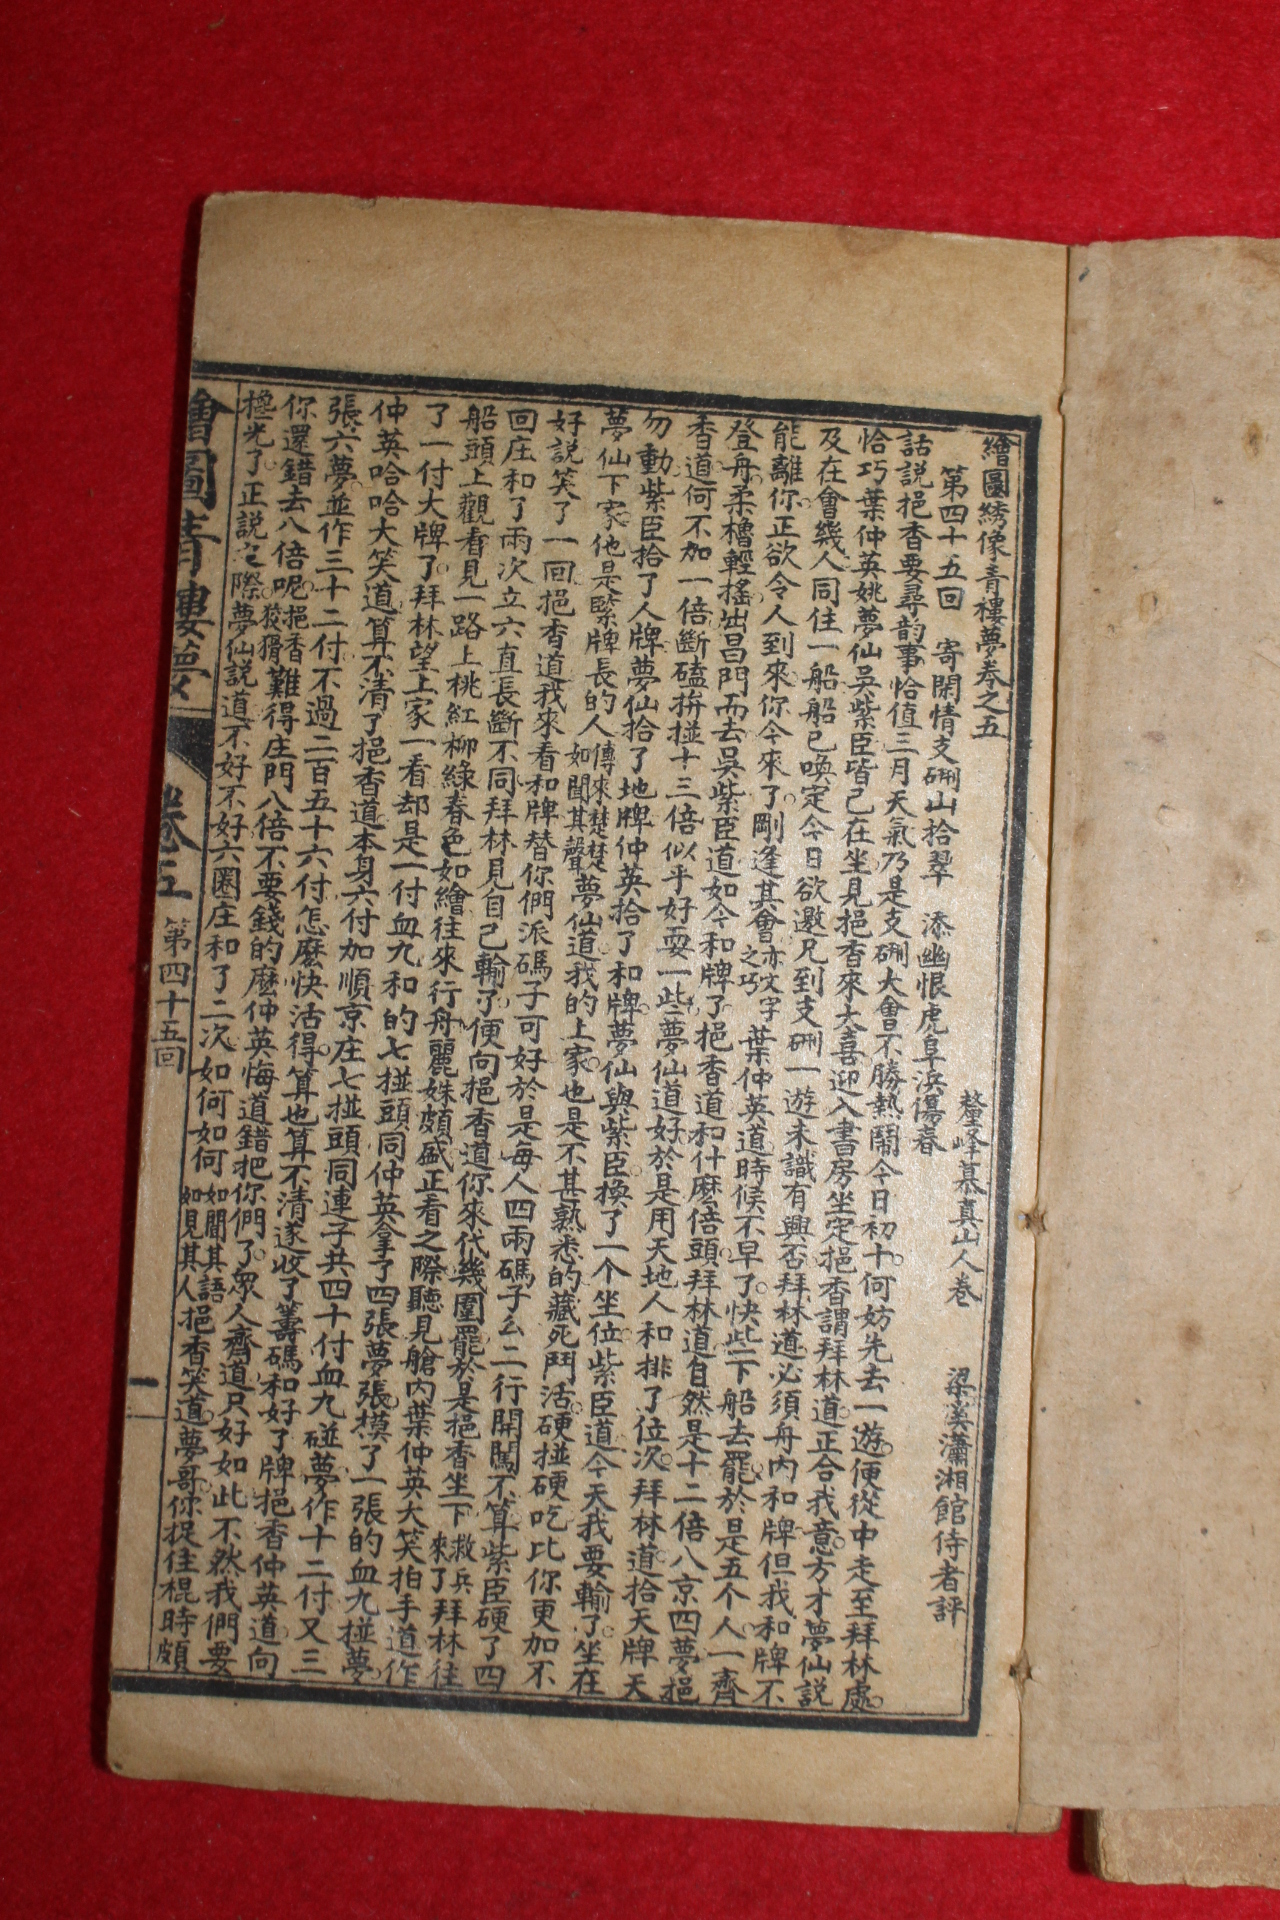 繪圖綉像青樓夢卷之五
釐峰慕真山人卷 梁溪瀟湘館侍者評
第四十五回 寄閑情支硎山拾翠 添幽恨虎阜浜傷春
話說挹香要尋韵事恰值三月天氣乃是支硎大會不勝熱鬧今日初十何妨先去一遊便從中走至拜林處
恰巧葉仲英姚夢仙吳紫臣皆已在坐見挹香來大喜迎入書房坐定挹香謂拜林道正合我意方才夢仙說
及在會幾人同住一船船已喚定今日欲邀兄到支硎一遊未識有興否拜林道必須舟內和牌但我和牌不
能離你正欲令人到來你今來了剛逢其會亦文字之巧葉仲英道時候不早了快些下船去罷於是五个人一齊
登舟柔櫓輕搖出昌門而去吳紫臣道如今和牌了挹香道和什麼倍頭拜林道自然是十二倍八京四夢挹
香道何不加一倍斷磕拚掽十三倍似乎好耍一些夢仙道好於是用天地人和排了位次拜林道拾天牌天
勿動紫臣拾了人牌夢仙拾了地牌仲英拾了和牌夢仙與紫臣換了一个坐位紫臣道今天我要輸了坐在
夢仙下家他是緊牌長的人傳來楚楚如聞其聲夢仙道我的上家也是不甚熟悉的藏死鬥活硬掽硬吃比你更加不
好說笑了一回挹香道我來看和牌替你們派碼子可好於是每人四兩碼子么二行開闖不算紫臣硬了四
回庄和了兩次立六直長斷不同拜林見自己輸了便向挹香道你來代幾圍罷於是挹香坐下救兵來了拜林往
船頭上觀看見一路上桃紅柳綠春色如繪往來行舟麗姝頗盛正看之際聽見艙內葉仲英大笑拍手道作
了一付大牌了拜林望上家一看却是一付血九和的七掽頭同仲英拿了四張夢張摸了一張的血九掽夢
仲英哈哈大笑道算不清了挹香道本身六付加順京庄七掽頭同連子共四十付血九碰夢作十二付又三
張六夢並作三十二付不過二百五十六付怎麼快活得算也算不清遂收了籌碼和好了牌挹香仲英道向
你還錯去八倍呢挹香狡猾難得庄門八倍不要錢的麼仲英悔道錯把你們了眾人齊道只好如此不然我們要
櫓光了正說之際夢仙說道不好不好六圈庄和了二次如何如何如聞其語如見其人挹香笑道夢哥你捉住棍時頗
繪圖青樓夢 卷五 第四十五回 一